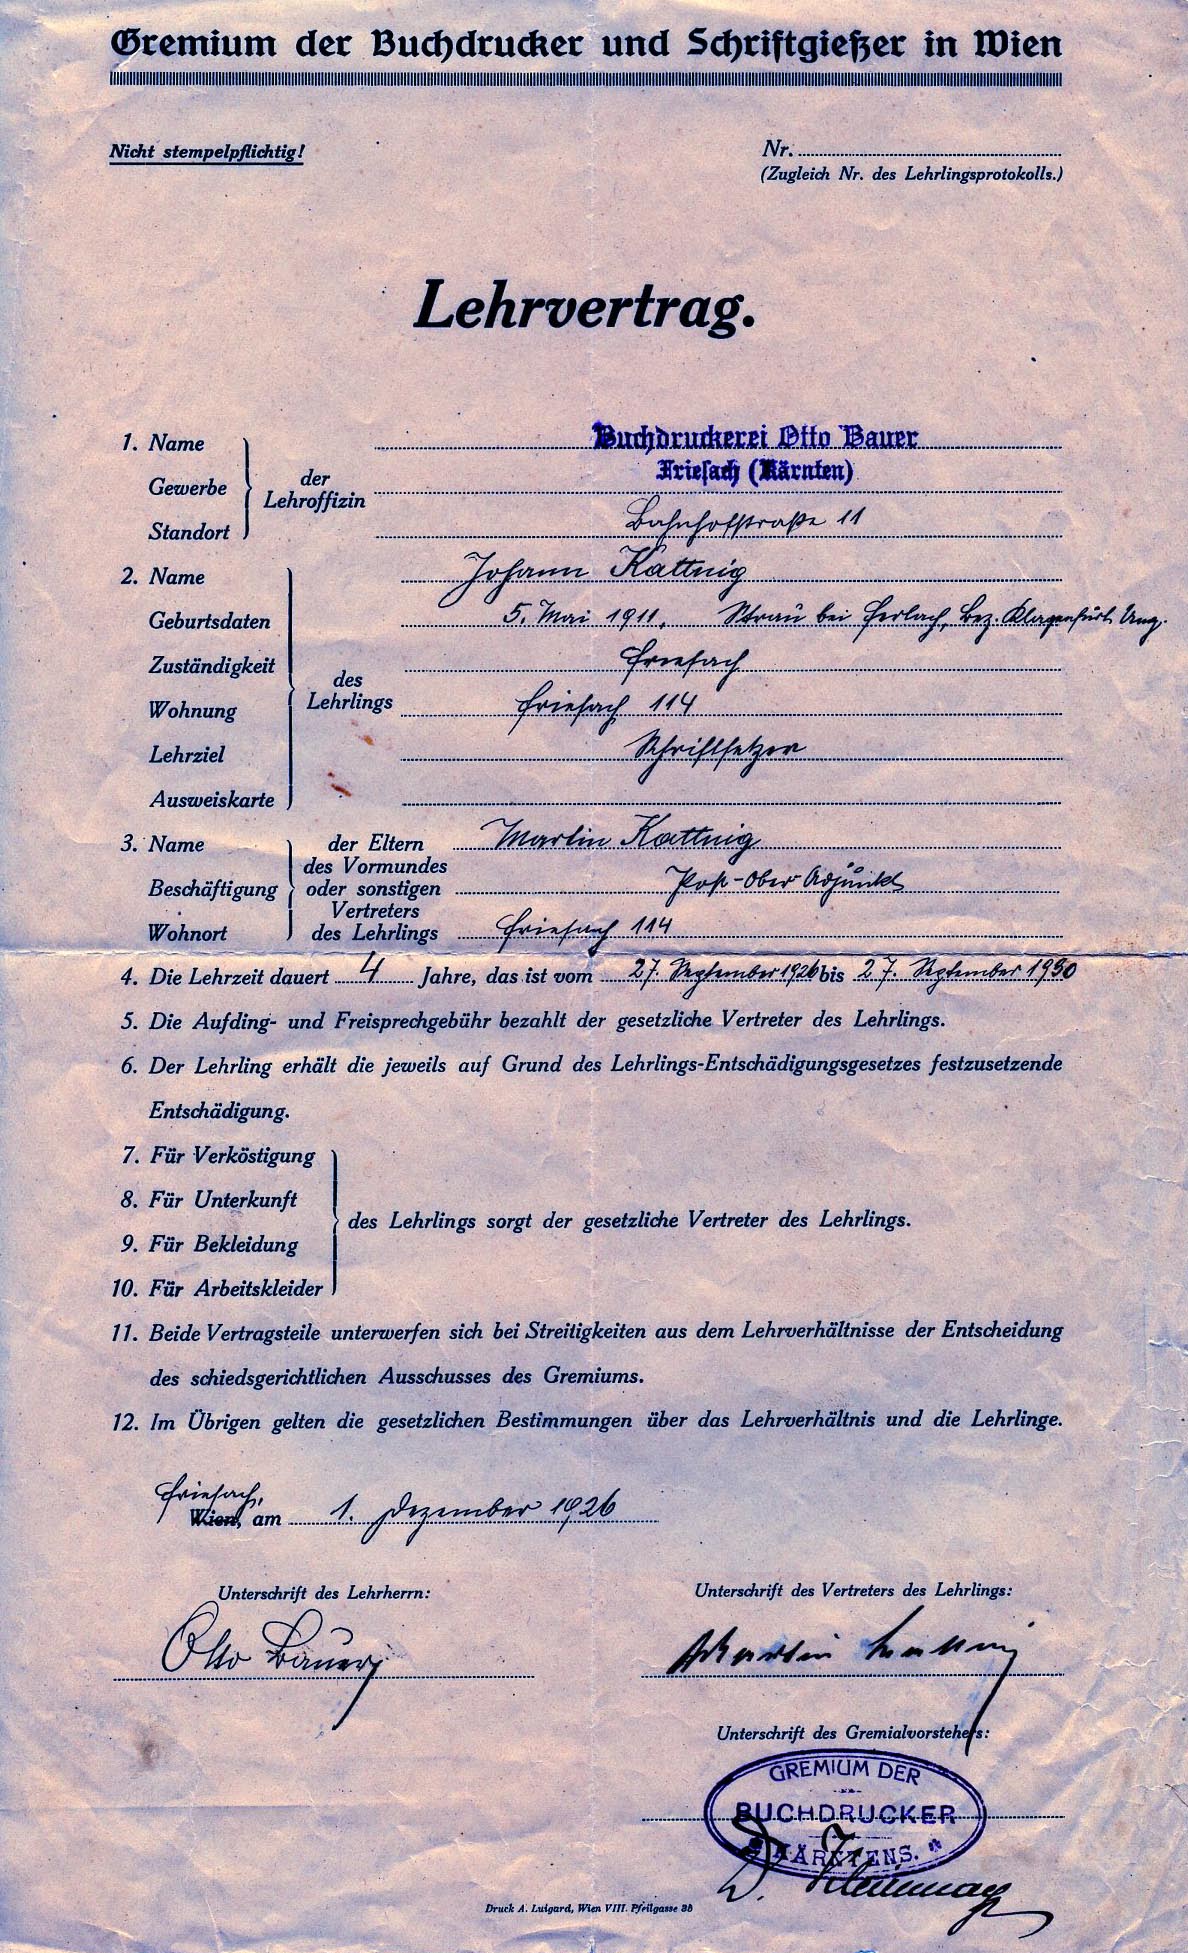 Gremium der Buchdrucker und Schriftgießer in Wien
Nicht stempelpflichtig!
Nr.
(Zugleich Nr. des Lehrlingsprotokolls.)
Lehrvertrag.
1. Name
Gewerbe
Standort
der
Lehroffizin
Buchdruckerei Otto Bauer
Friesach (Kärnten)
Bahnhofstraße 11
2. Name
Geburtsdaten
Zuständigkeit
Wohnung
Lehrziel
Ausweiskarte
des
Lehrlings
Johann Kattnig
5. Mai 1911, Strau bei Ferlach, Bez. Klagenfurt Umg.
Friesach
Friesach 114
Schriftsetzer
3. Name
Beschäftigung
Wohnort
der Eltern
des Vormundes
oder sonstigen
Vertreters
des Lehrlings
Martin Kattnig
Post-Ober Adjunkt
Friesach 114
4. Die Lehrzeit dauert 4 Jahre, das ist vom 27. September 1926 bis 27. September 1930
5. Die Aufding- und Freisprechgebühr bezahlt der gesetzliche Vertreter des Lehrlings.
6. Der Lehrling erhält die jeweils auf Grund des Lehrlings-Entschädigungsgesetzes festzusetzende
Entschädigung.
7. Für Verköstigung
8. Für Unterkunft
9. Für Bekleidung
10. Für Arbeitskleider
des Lehrlings sorgt der gesetzliche Vertreter des Lehrlings.
11. Beide Vertragsteile unterwerfen sich bei Streitigkeiten aus dem Lehrverhältnisse der Entscheidung
des schiedsgerichtlichen Ausschusses des Gremiums.
12. Im Übrigen gelten die gesetzlichen Bestimmungen über das Lehrverhältnis und die Lehrlinge.
Friesach,
Wien, am 1. Dezember 1926
Unterschrift des Lehrherrn:
Otto Bauer
Unterschrift des Vertreters des Lehrlings:
Martin Kattnig
Unterschrift des Gremialvorstehers:
GREMIUM DER
BUCHDRUCKER
KÄRNTENS.
Druck A. Luigard, Wien VIII. Pfeilgasse